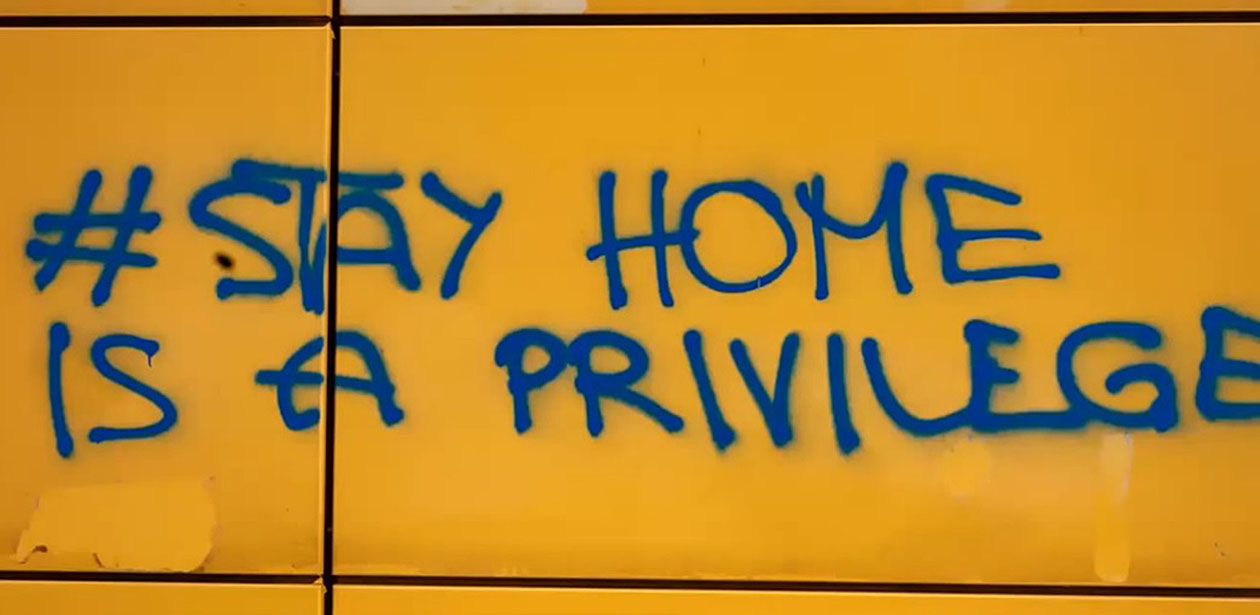 #STAY HOME
IS A PRIVILEGE